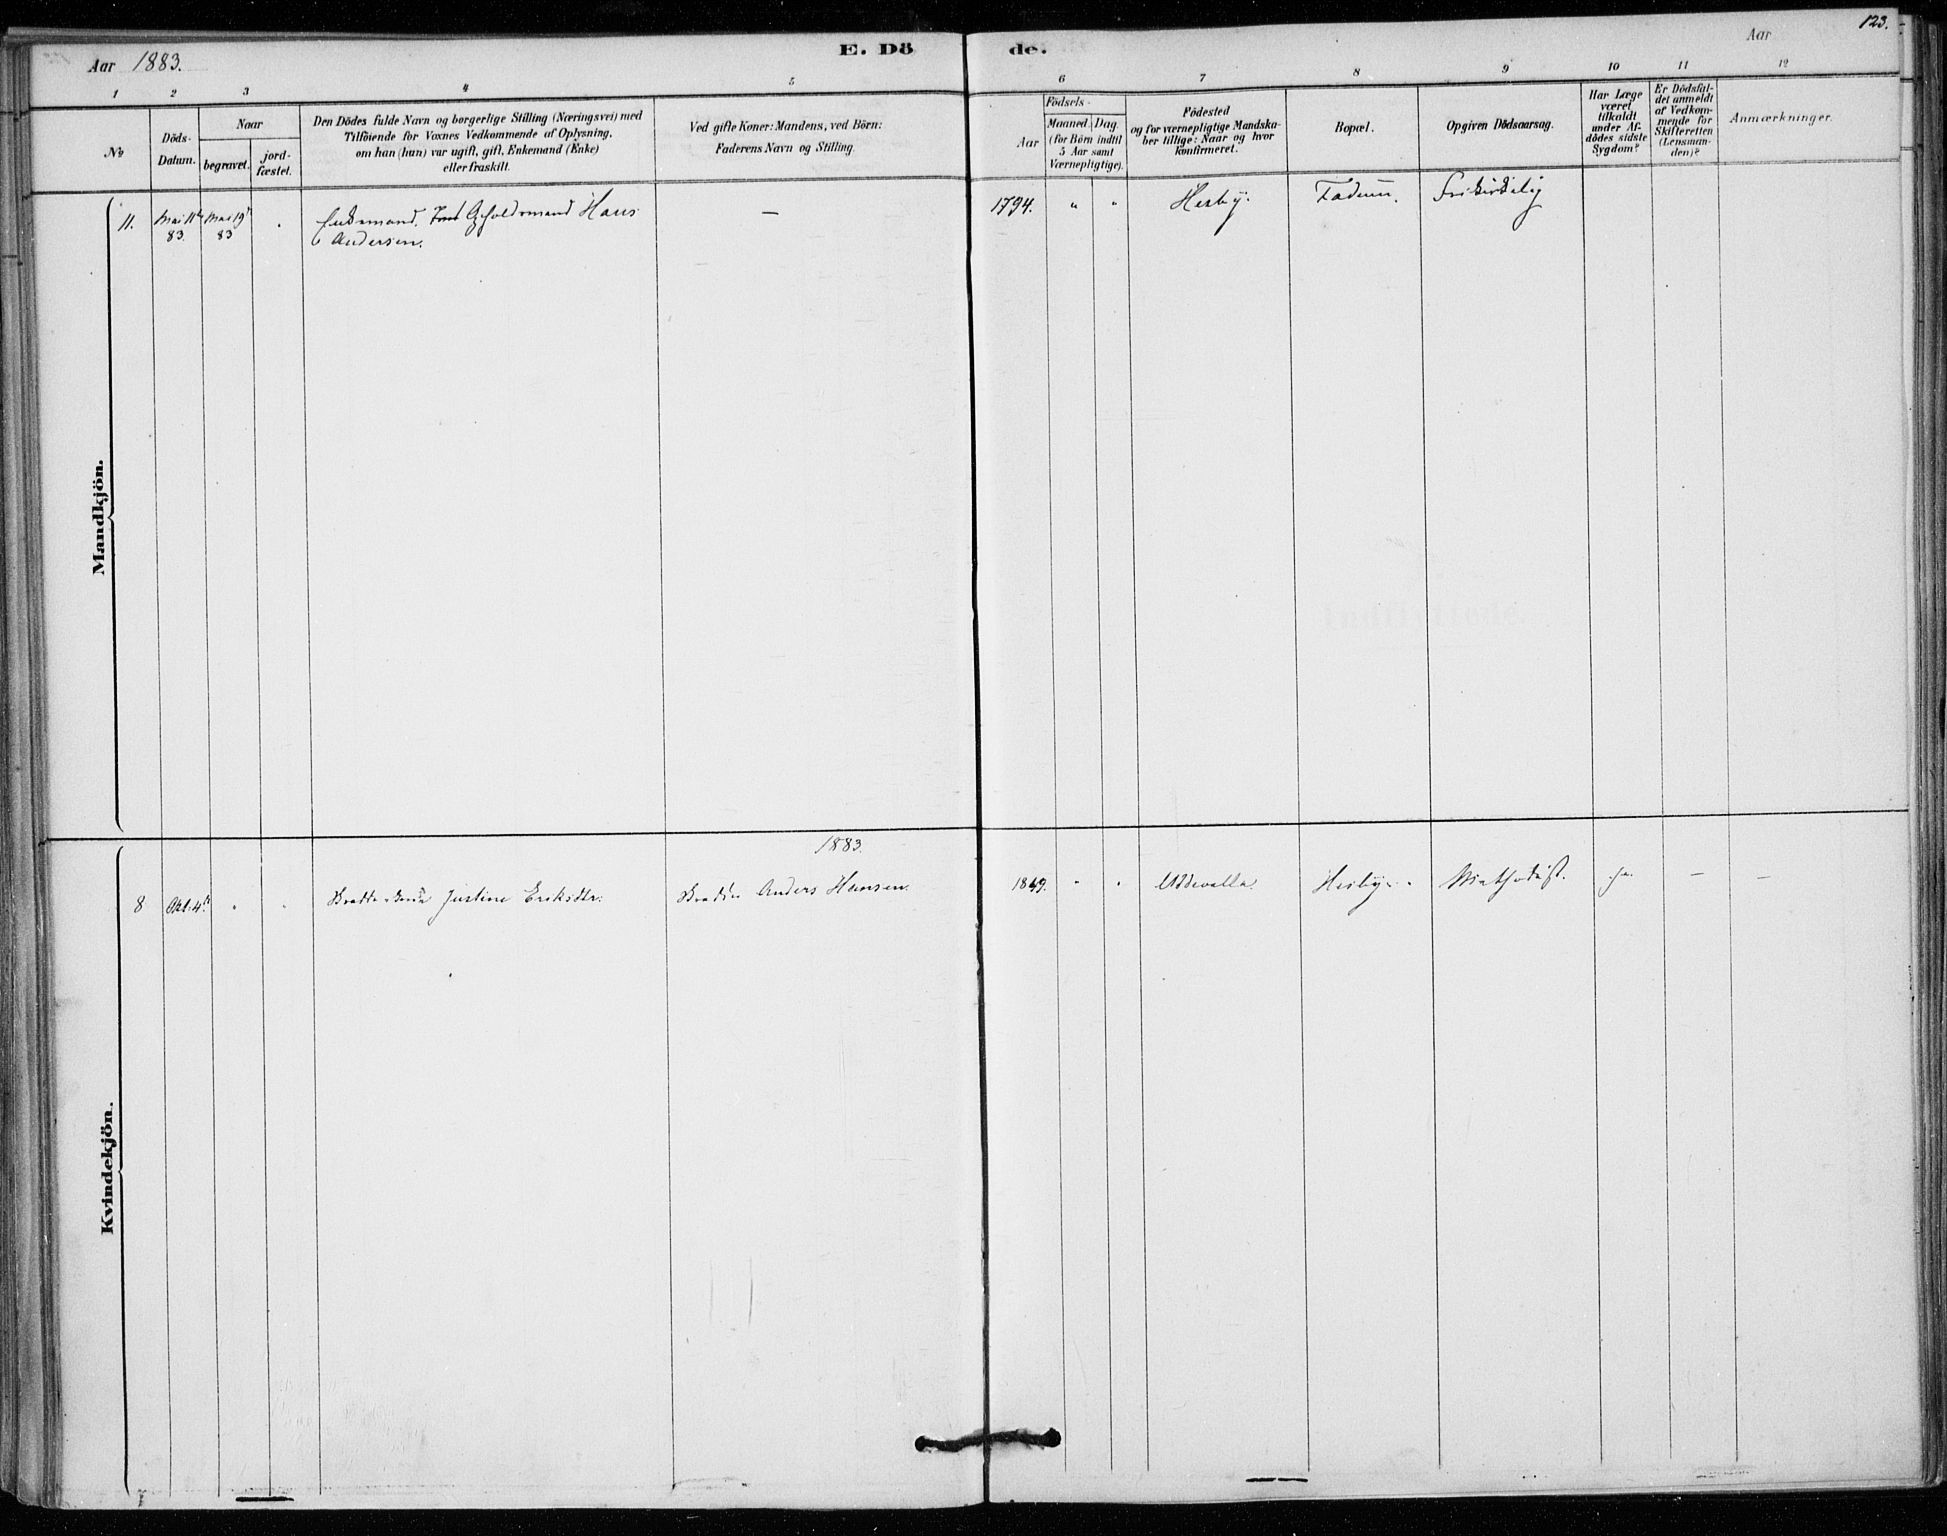 Aar 1883.
E. Dö de.
Aar
123.
1 2 3 4 5 6 7 8 9 10 11 12
No
Döds-
Datum.
Naar
begravet.
jord-
fæstet.
Den Dödes fulde Navn og borgerlige Stilling (Næringsvei) med
Tilföiende for Voxnes Vedkommende af Oplysning,
om han (hun) var ugift, gift, Enkemand (Enke)
eller fraskilt.
Ved gifte Koner: Mandens, ved Börn:
Faderens Navn og Stilling.
Födsels-
Aar
Maaned. Dag.
(for Börn indtil
5 Aar samt
Værnepligtige).
Födested
og for værnepligtige Mandska-
ber tillige: Naar og hvor
konfirmeret.
Bopæl.
Opgiven Dödsaarsag.
Har Læge
været
tilkaldt
under Af-
dödes sidste
Sygdom?
Er Dödsfal-
det anmeldt
af Vedkom-
mende for
Skifteretten
(Lensman-
den)?
Anmærkninger.
Mandkjön.
11. Mai 11te Mai 19d Enkemand. Hans — 1794. " " Hesby. Fadum. Frikirkelig
83. 83 Andersen.
1883.
Kvindekjön.
8 Okt. 4de " " Justine Eriksdtr. Anders Hansen. 1849. " " Uddevalla. Hesby. Methodist. ja. — —